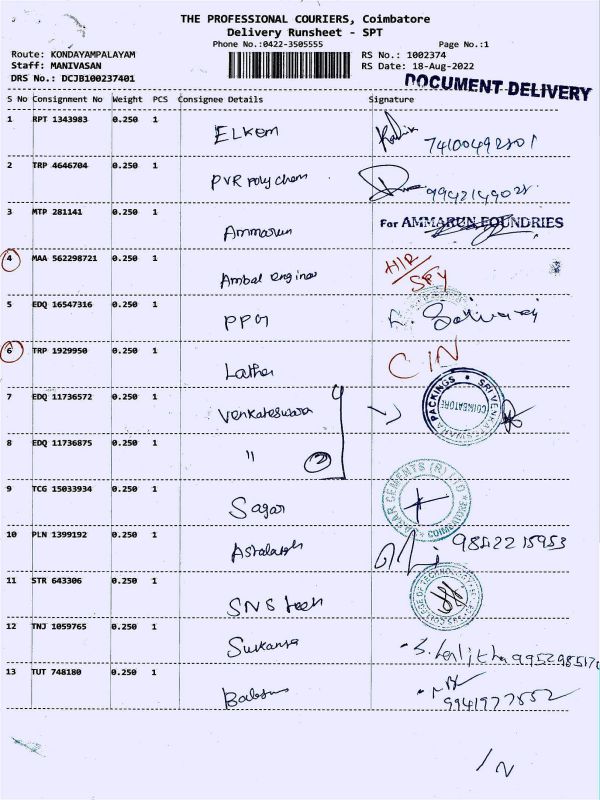 THE PROFESSIONAL COURIERS, Coimbatore
Delivery Runsheet - SPT
Phone No.:0422-3505555 Page No.:1
Route: KONDAYAMPALAYAM RS No.: 1002374
Staff: MANIVASAN RS Date: 18-Aug-2022
DRS No.: DCJB100237401
DOCUMENT DELIVERY
S No Consignment No Weight PCS Consignee Details Signature
1 RPT 1343983 0.250 1 ELKem
2 TRP 4646704 0.250 1 PVR Poly chem
3 MTP 281141 0.250 1 Ammarun For AMMARUN FOUNDRIES
4 MAA 562298721 0.250 1 Ambal
5 EDQ 16547316 0.250 1
6 TRP 1929950 0.250 1 CIN
7 EDQ 11736572 0.250 1 Venkateswara SRI VENKATESWARA PACKINGS COIMBATORE
8 EDQ 11736875 0.250 1 " 2
9 TCG 15033934 0.250 1 Sagar SAGAR CEMENTS (R) LTD COIMBATORE
10 PLN 1399192 0.250 1 9842215953
11 STR 643306 0.250 1 SNS tech
12 TNJ 1059765 0.250 1 Sukansa S. Lalitha
13 TUT 748180 0.250 1